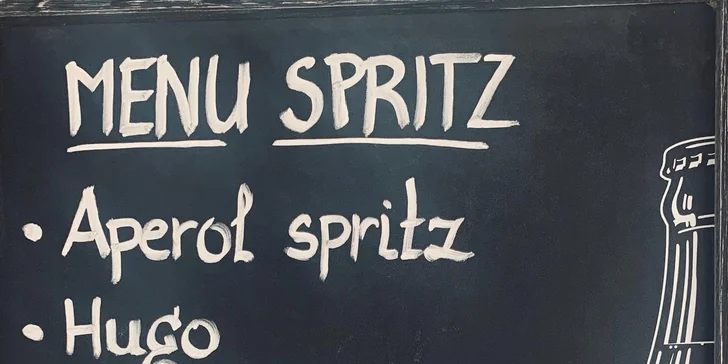 MENU SPRITZ
• Aperol spritz
• Hugo